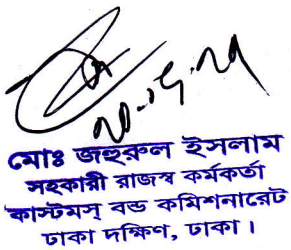 মোঃ জহুরুল ইসলাম
সহকারী রাজস্ব কর্মকর্তা
কাস্টমস্ বন্ড কমিশনারেট
ঢাকা দক্ষিণ, ঢাকা।